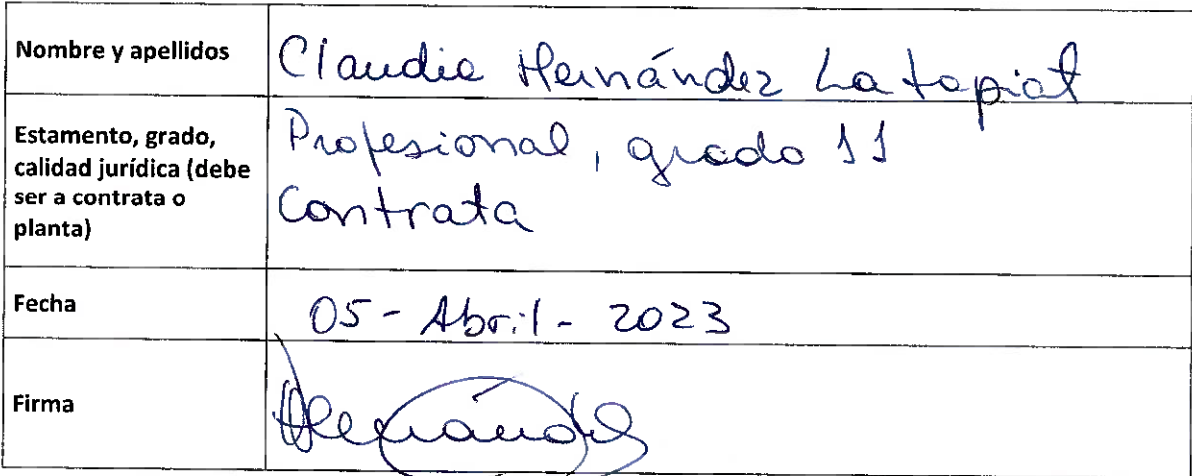 Nombre y apellidos
Claudia Hernández Latapiat
Estamento, grado,
calidad jurídica (debe
ser a contrata o
planta)
Profesional, grado 11
Contrata
Fecha
05 - Abril - 2023
Firma
Hernández